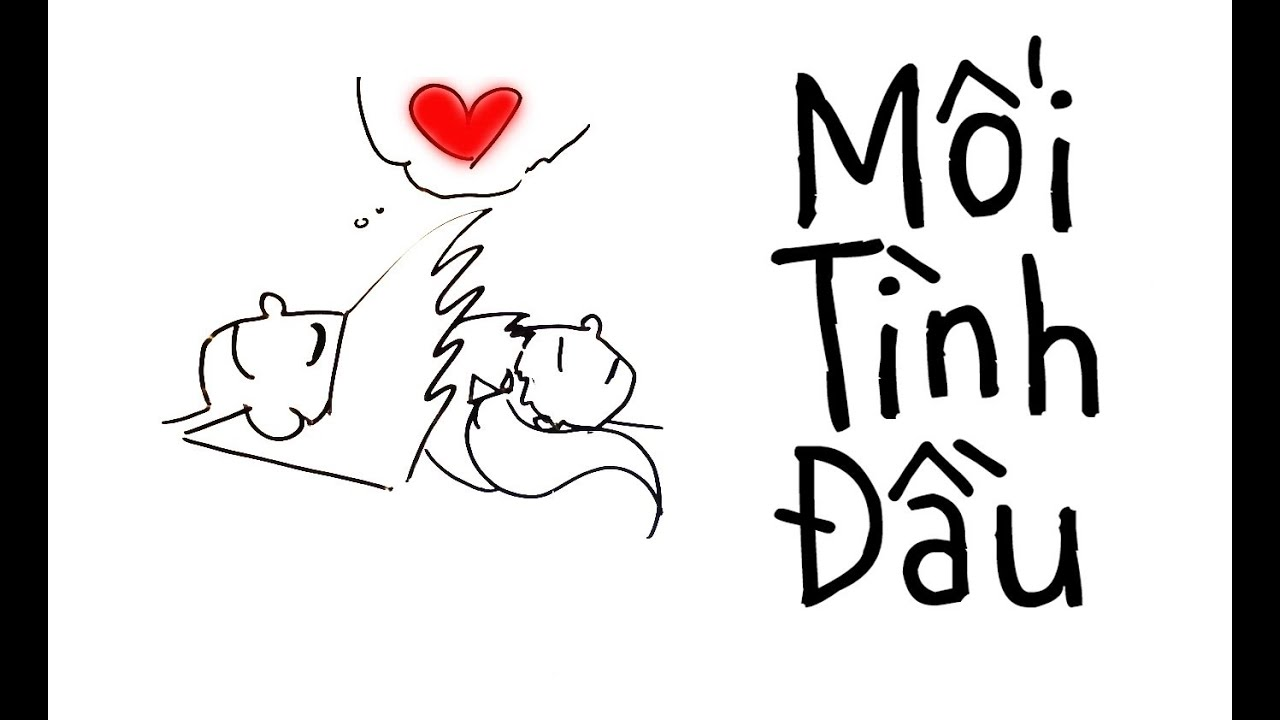 Mối
Tình
Đầu